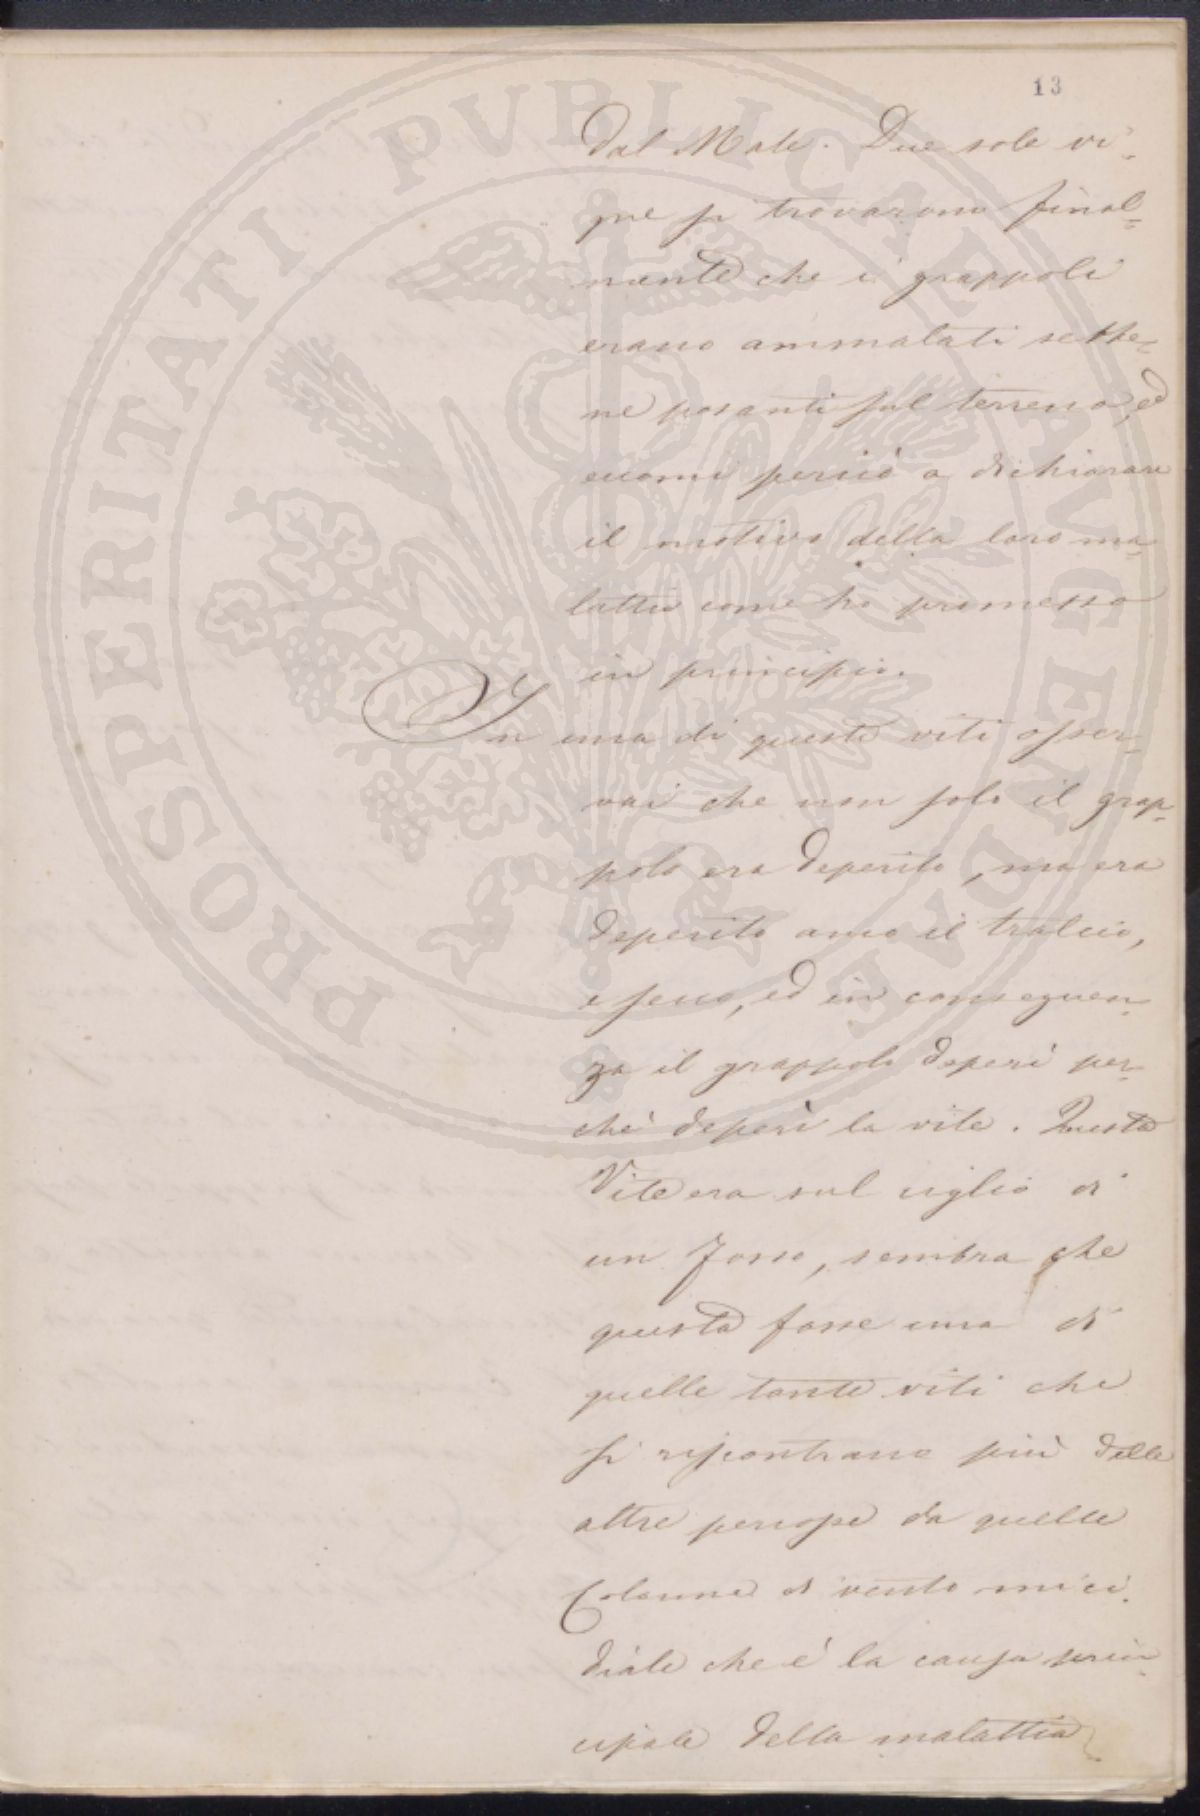 13
dal Male. Due sole vi-
gne si trovarono final-
mente che i grappoli
erano ammalati sebbe-
ne posanti sul terreno, ed
eccomi perciò a dichiarare
il motivo della loro ma-
lattia come ho promesso
in principio.
In una di queste viti osser-
vai che non solo il grap-
polo era deperito, ma era
deperito anco il tralcio,
e secco, ed in conseguen-
za il grappolo deperì per-
chè deperì la vite. Questa
Vite era sul ciglio di
un Fosso, sembra che
questa fosse una di
quelle tante viti che
si riscontrano più delle
altre percosse da quelle
Colonne di vento mici-
diale che è la causa prin-
cipale della malattia
PROSPERITATI PVBLICAE AVGENDAE